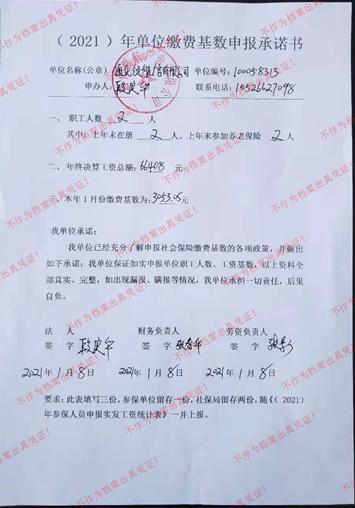 （2021）年单位缴费基数申报承诺书
单位名称(公章)：通化 有限公司 单位编号：100058313
申办人： 联系电话：15526627098
一、 职工人数 2 人
其中：上年末在册 2 人、上年末参加养老保险 2 人
二、 年终决算工资总额：66408 元
三、本年1月份缴费基数为：3053.05元
我单位承诺：
我单位已经充分了解申报社会保险缴费基数的各项政策，并做出
如下承诺：我单位保证如实申报单位职工人数、工资基数，以上资料全
部真实、完整，如出现漏报、瞒报等情况，我单位承担一切责任，后果
自负。
法 人 财务负责人 劳资负责人
签 字 签 字 签 字
2021年1月8日 2021年1月8日 2021年1月8日
要求：此表填写三份，参保单位留存一份，社保局留存两份，随《（2021）
年参保人员申报实发工资统计表》一并上报。
不作为档案出具凭证！